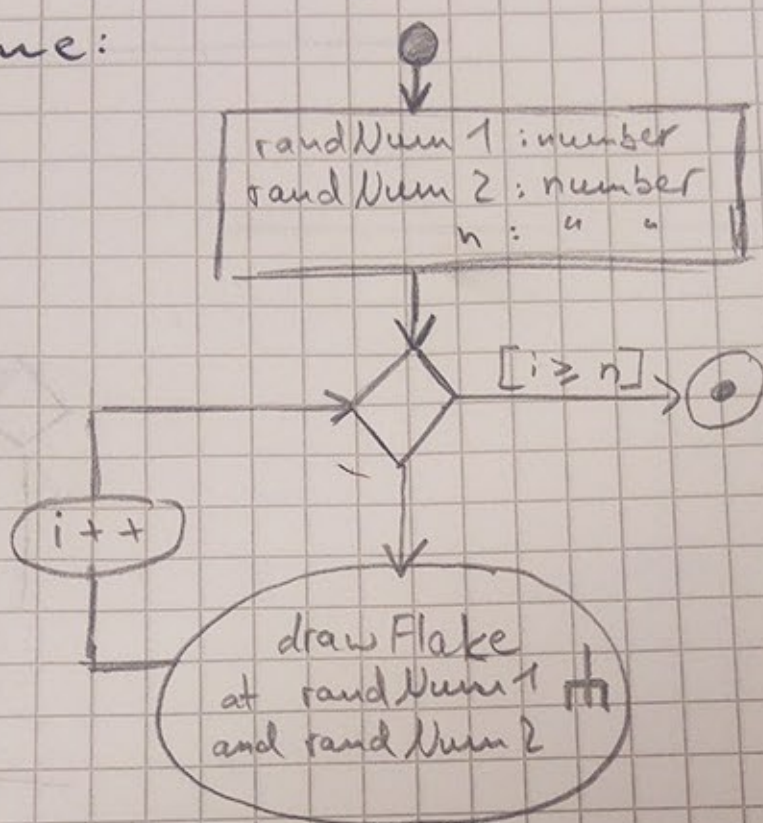 me:
randNum 1 : number
randNum 2 : number
n : " "
[i ≥ n]
i + +
drawFlake
at randNum 1
and randNum 2